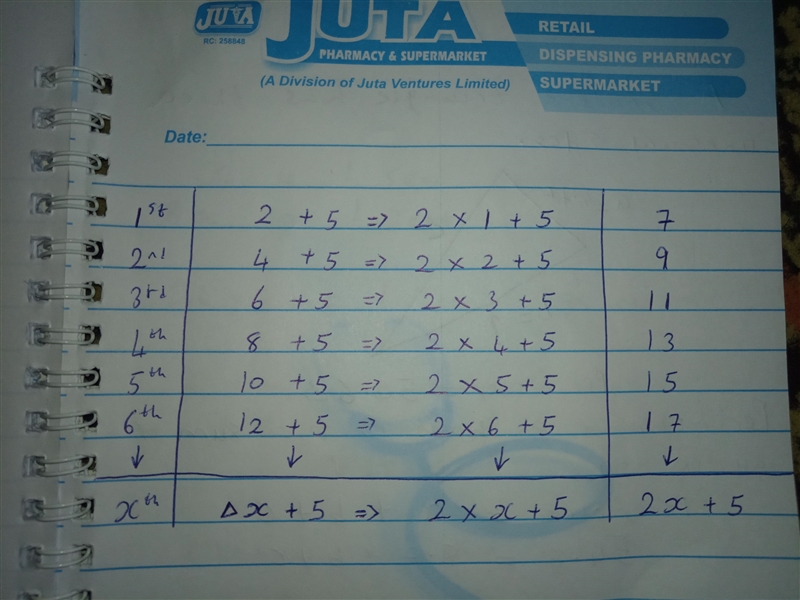 JUTA
RC: 256848
JUTA
PHARMACY & SUPERMARKET
(A Division of Juta Ventures Limited)
RETAIL
DISPENSING PHARMACY
SUPERMARKET
Date:
1st 2 + 5 => 2 × 1 + 5 7
2nd 4 + 5 => 2 × 2 + 5 9
3rd 6 + 5 => 2 × 3 + 5 11
4th 8 + 5 => 2 × 4 + 5 13
5th 10 + 5 => 2 × 5 + 5 15
6th 12 + 5 => 2 × 6 + 5 17
↓ ↓ ↓ ↓
xth Δx + 5 => 2 × x + 5 2x + 5